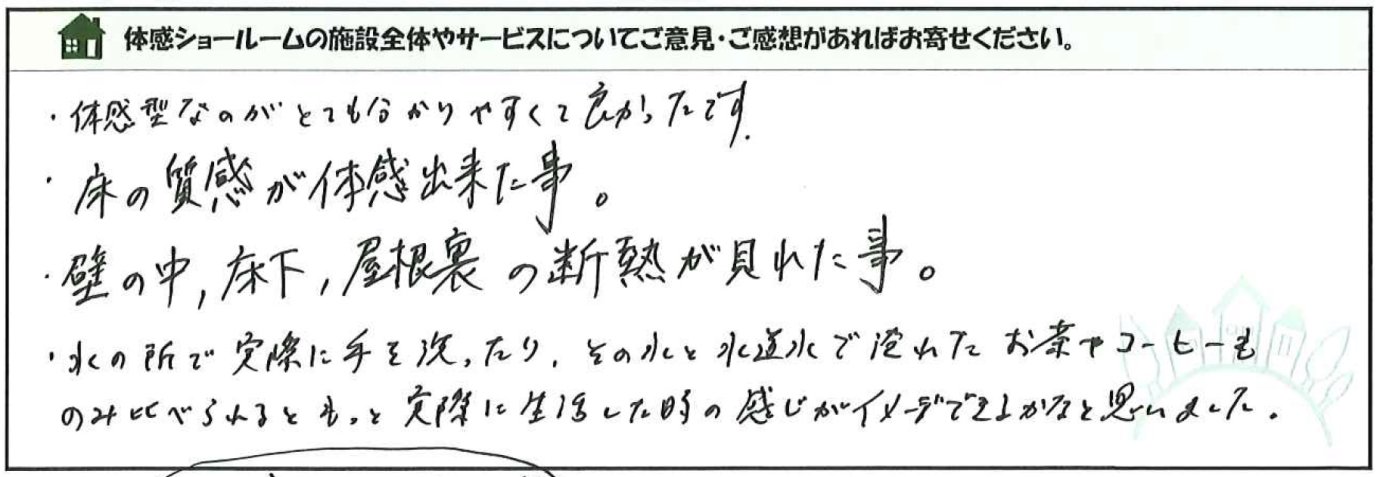 体感ショールームの施設全体やサービスについてご意見・ご感想があればお寄せください。
・体感型なのがとても分かりやすくて良かったです.
・床の質感が体感出来た事。
・壁の中,床下,屋根裏の断熱が見れた事。
・水の所で実際に手を洗ったり、その水と水道水で淹れたお茶やコーヒーも
のみ比べられるともっと実際に生活した時の感じがイメージできるかなと思いました。